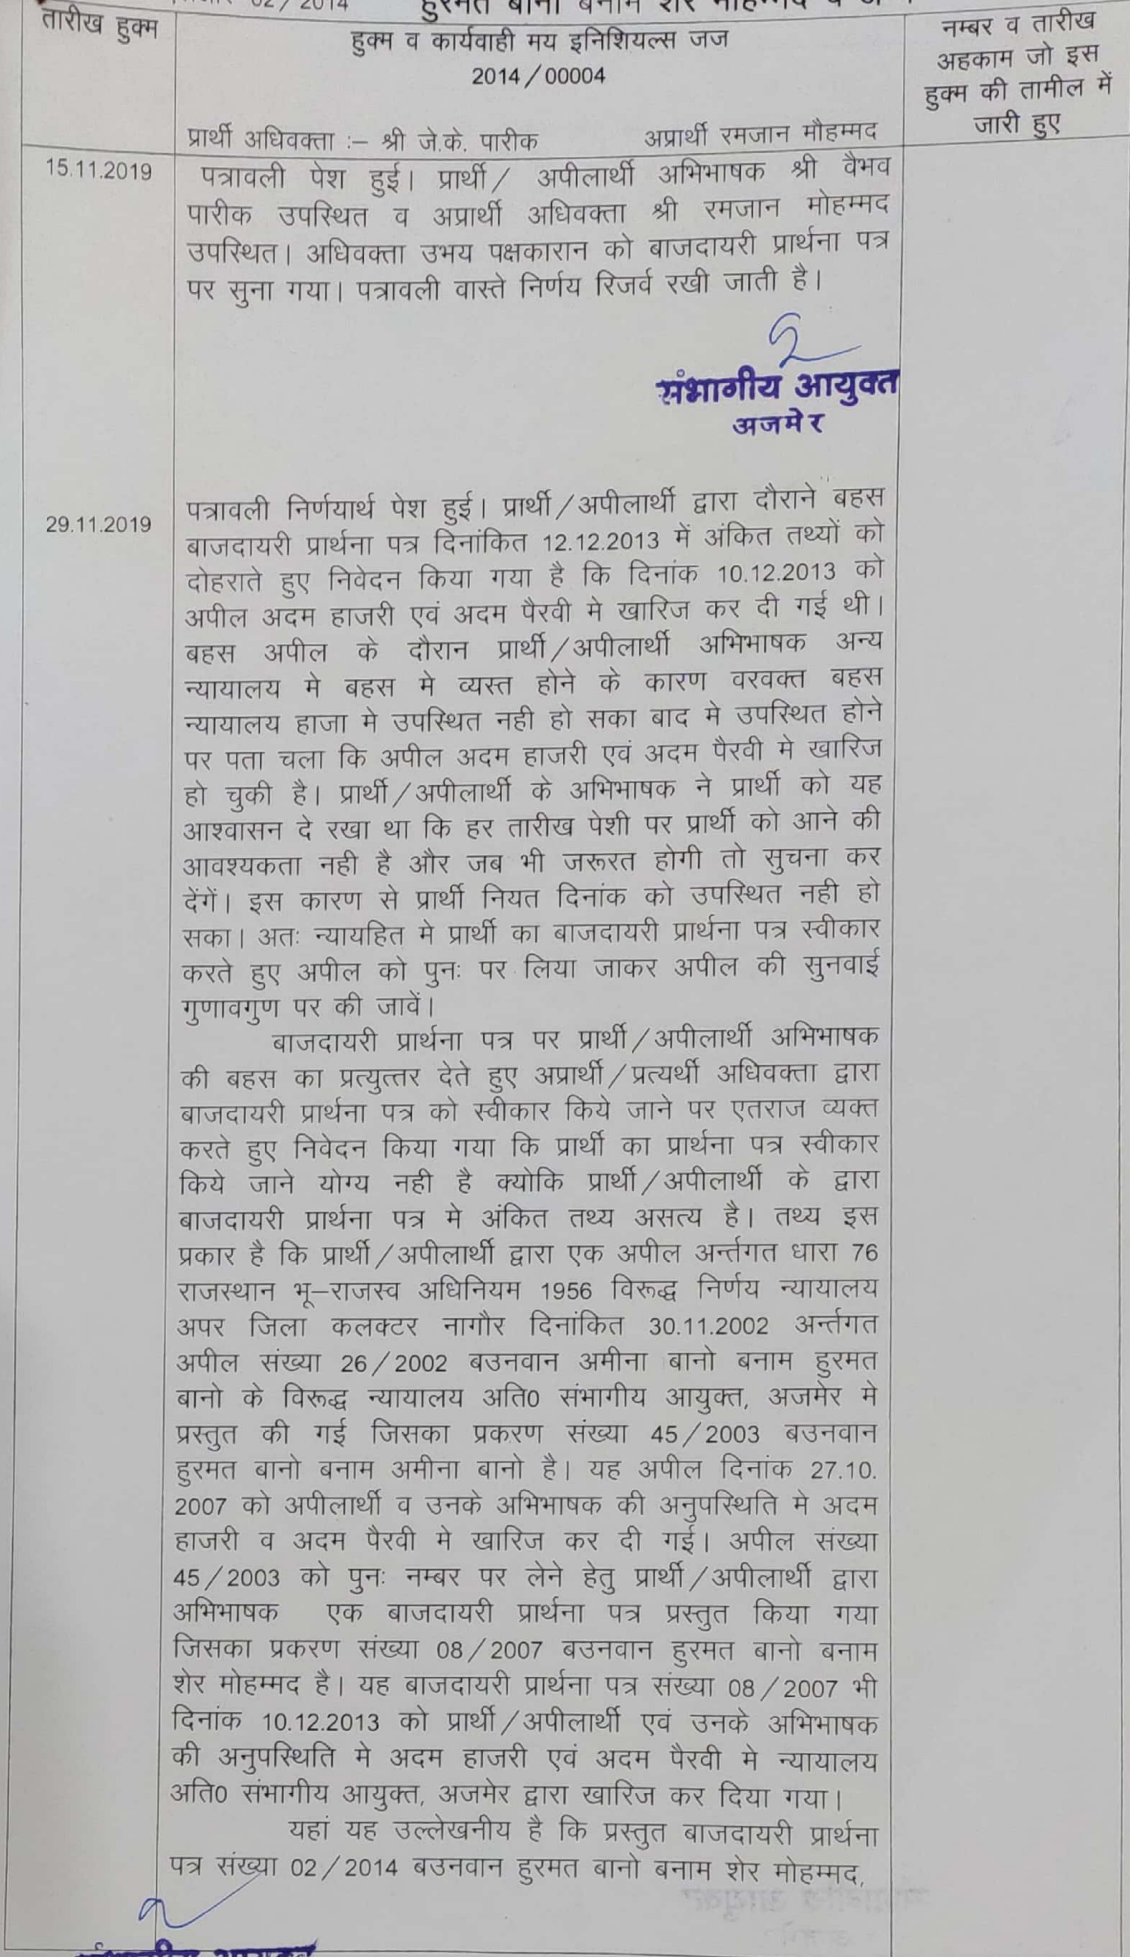 02/2014 हुरमत बानो बनाम शेर मोहम्मद व
तारीख हुक्म
हुक्म व कार्यवाही मय इनिशियल्स जज
2014/00004
नम्बर व तारीख
अहकाम जो इस
हुक्म की तामील में
जारी हुए
प्रार्थी अधिवक्ता :– श्री जे.के. पारीक अप्रार्थी रमजान मौहम्मद
15.11.2019
पत्रावली पेश हुई। प्रार्थी/ अपीलार्थी अभिभाषक श्री वैभव
पारीक उपस्थित व अप्रार्थी अधिवक्ता श्री रमजान मोहम्मद
उपस्थित। अधिवक्ता उभय पक्षकारान को बाजदायरी प्रार्थना पत्र
पर सुना गया। पत्रावली वास्ते निर्णय रिजर्व रखी जाती है।
संभागीय आयुक्त
अजमेर
29.11.2019
पत्रावली निर्णयार्थ पेश हुई। प्रार्थी/अपीलार्थी द्वारा दौराने बहस
बाजदायरी प्रार्थना पत्र दिनांकित 12.12.2013 में अंकित तथ्यों को
दोहराते हुए निवेदन किया गया है कि दिनांक 10.12.2013 को
अपील अदम हाजरी एवं अदम पैरवी मे खारिज कर दी गई थी।
बहस अपील के दौरान प्रार्थी/अपीलार्थी अभिभाषक अन्य
न्यायालय मे बहस मे व्यस्त होने के कारण वरवक्त बहस
न्यायालय हाजा मे उपस्थित नही हो सका बाद मे उपस्थित होने
पर पता चला कि अपील अदम हाजरी एवं अदम पैरवी मे खारिज
हो चुकी है। प्रार्थी/अपीलार्थी के अभिभाषक ने प्रार्थी को यह
आश्वासन दे रखा था कि हर तारीख पेशी पर प्रार्थी को आने की
आवश्यकता नही है और जब भी जरूरत होगी तो सुचना कर
देंगें। इस कारण से प्रार्थी नियत दिनांक को उपस्थित नही हो
सका। अतः न्यायहित मे प्रार्थी का बाजदायरी प्रार्थना पत्र स्वीकार
करते हुए अपील को पुनः पर लिया जाकर अपील की सुनवाई
गुणावगुण पर की जावें।
बाजदायरी प्रार्थना पत्र पर प्रार्थी/अपीलार्थी अभिभाषक
की बहस का प्रत्युत्तर देते हुए अप्रार्थी/प्रत्यर्थी अधिवक्ता द्वारा
बाजदायरी प्रार्थना पत्र को स्वीकार किये जाने पर एतराज व्यक्त
करते हुए निवेदन किया गया कि प्रार्थी का प्रार्थना पत्र स्वीकार
किये जाने योग्य नही है क्योकि प्रार्थी/अपीलार्थी के द्वारा
बाजदायरी प्रार्थना पत्र मे अंकित तथ्य असत्य है। तथ्य इस
प्रकार है कि प्रार्थी/अपीलार्थी द्वारा एक अपील अर्न्तगत धारा 76
राजस्थान भू–राजस्व अधिनियम 1956 विरूद्ध निर्णय न्यायालय
अपर जिला कलक्टर नागौर दिनांकित 30.11.2002 अर्न्तगत
अपील संख्या 26/2002 बउनवान अमीना बानो बनाम हुरमत
बानो के विरूद्ध न्यायालय अति0 संभागीय आयुक्त, अजमेर मे
प्रस्तुत की गई जिसका प्रकरण संख्या 45/2003 बउनवान
हुरमत बानो बनाम अमीना बानो है। यह अपील दिनांक 27.10.
2007 को अपीलार्थी व उनके अभिभाषक की अनुपस्थिति मे अदम
हाजरी व अदम पैरवी मे खारिज कर दी गई। अपील संख्या
45/2003 को पुनः नम्बर पर लेने हेतु प्रार्थी/अपीलार्थी द्वारा
अभिभाषक एक बाजदायरी प्रार्थना पत्र प्रस्तुत किया गया
जिसका प्रकरण संख्या 08/2007 बउनवान हुरमत बानो बनाम
शेर मोहम्मद है। यह बाजदायरी प्रार्थना पत्र संख्या 08/2007 भी
दिनांक 10.12.2013 को प्रार्थी/अपीलार्थी एवं उनके अभिभाषक
की अनुपस्थिति मे अदम हाजरी एवं अदम पैरवी मे न्यायालय
अति0 संभागीय आयुक्त, अजमेर द्वारा खारिज कर दिया गया।
यहां यह उल्लेखनीय है कि प्रस्तुत बाजदायरी प्रार्थना
पत्र संख्या 02/2014 बउनवान हुरमत बानो बनाम शेर मोहम्मद,
संभागीय आयुक्त